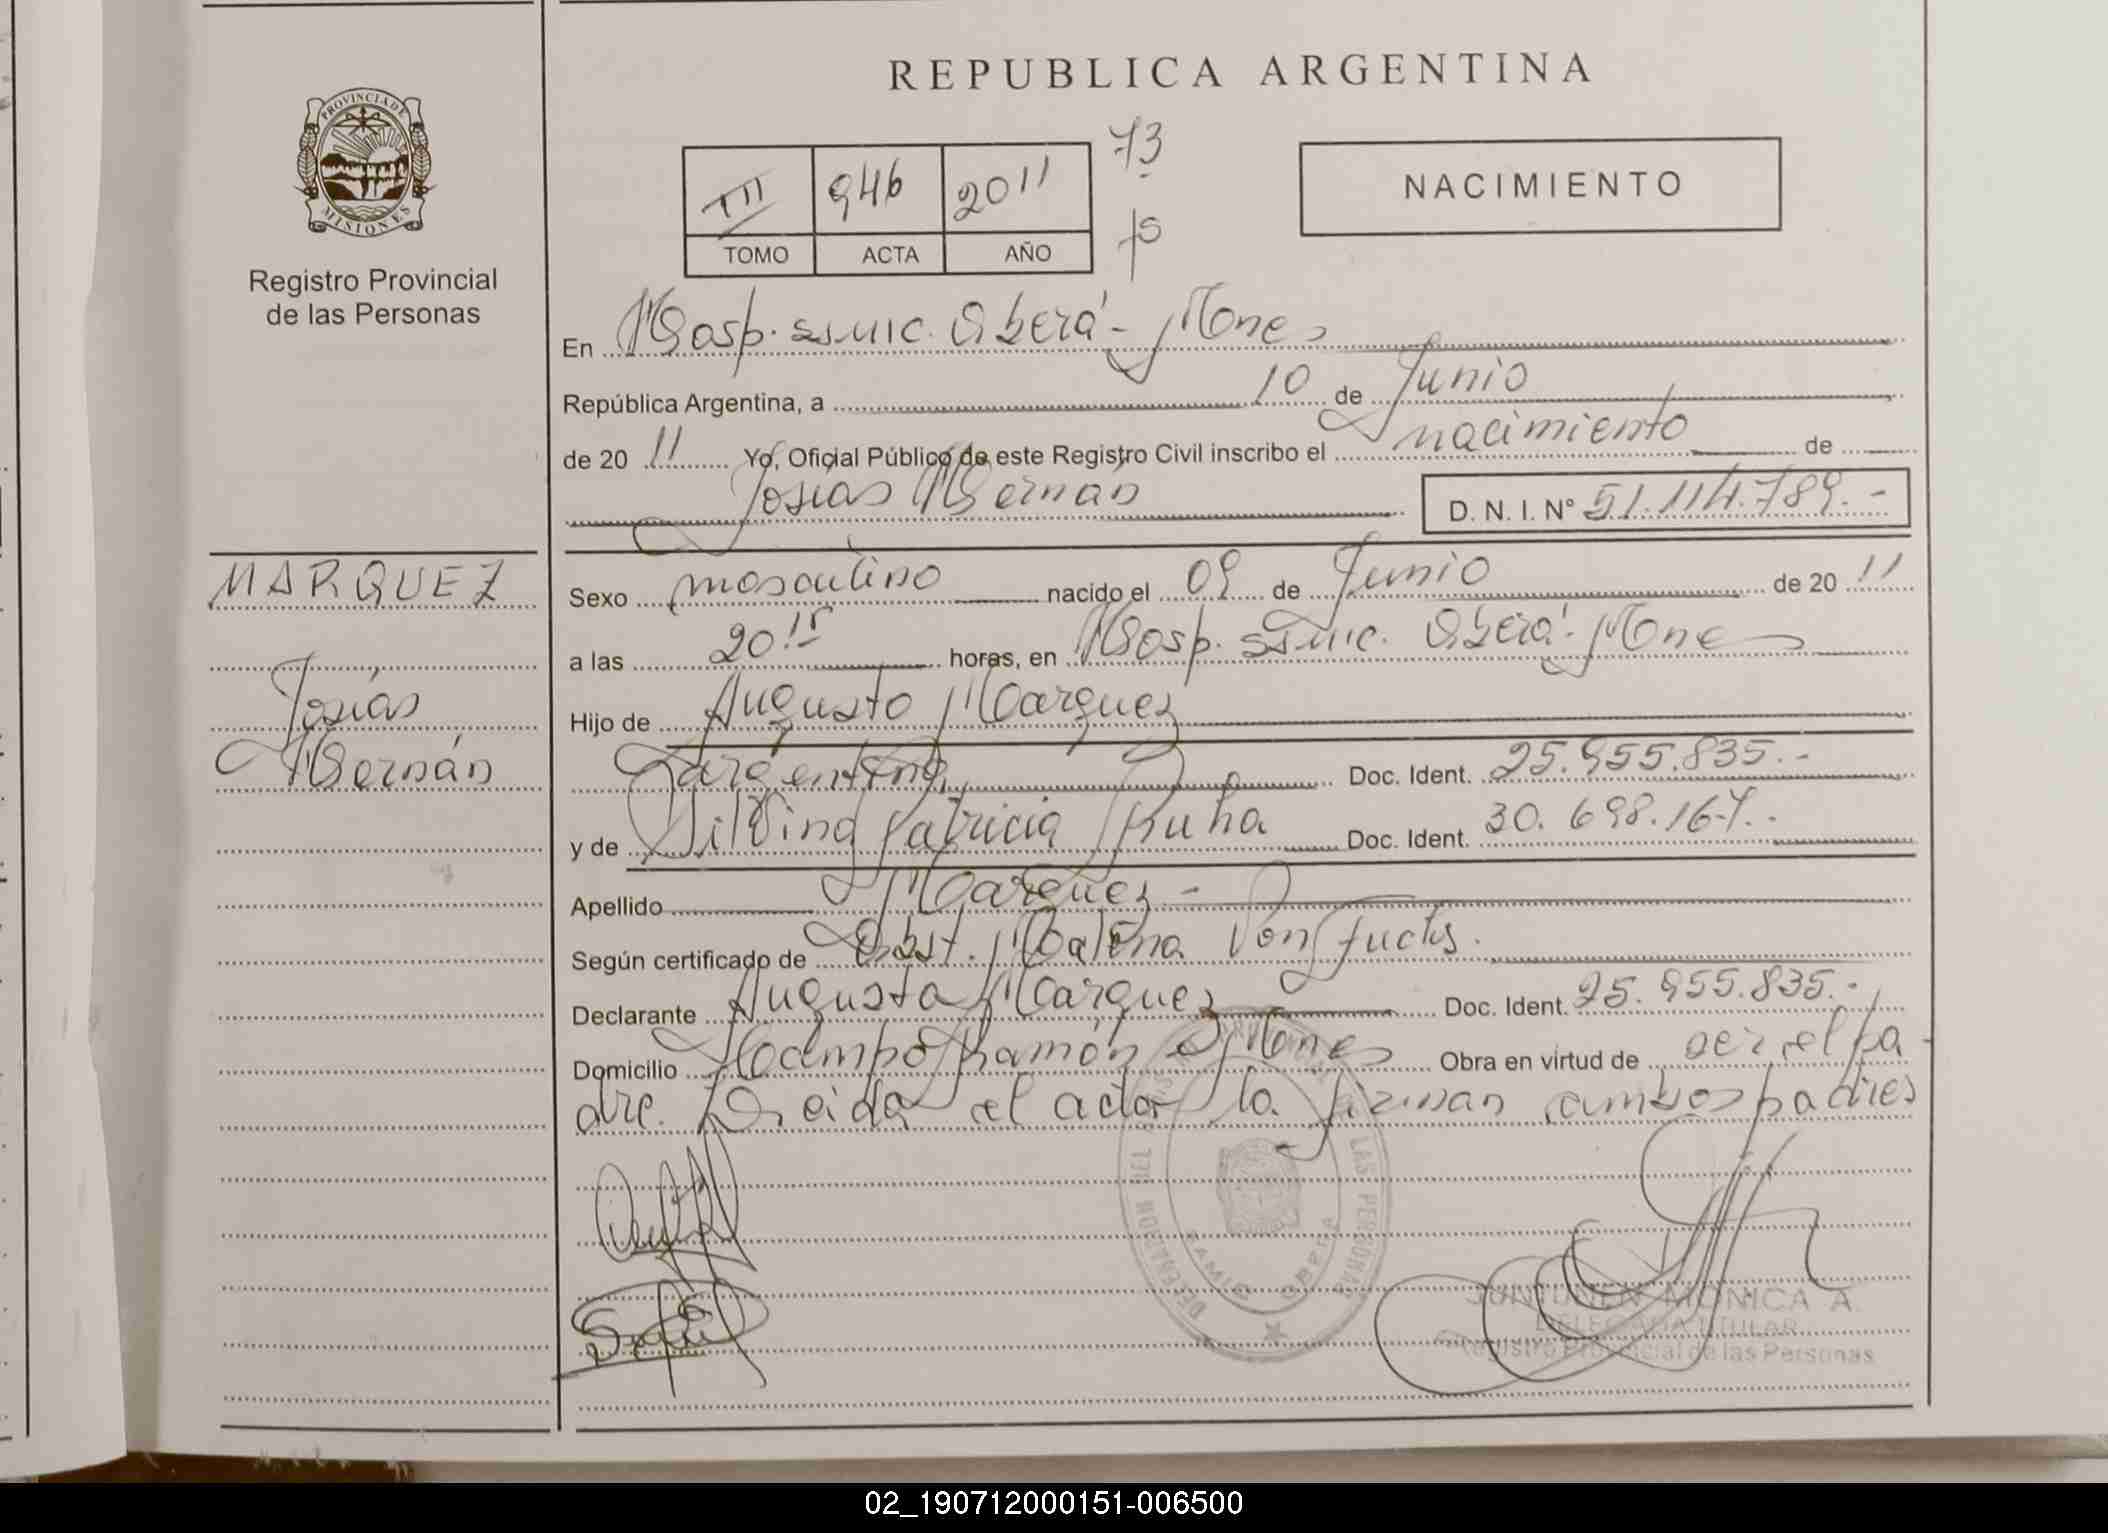 REPUBLICA ARGENTINA
PROVINCIA DE
MISIONES
Registro Provincial
de las Personas
TIII 946 2011
TOMO ACTA AÑO
73
NACIMIENTO
En Hosp. SSMIC. Oberá - Mones
República Argentina, a 10 de Junio
de 20 11 Yo, Oficial Público de este Registro Civil inscribo el nacimiento de
Josías Hernán D. N. I. N° 51.114.789.-
MARQUEZ
Josías
Hernán
Sexo masculino nacido el 09 de Junio de 20 11
a las 20:15 horas, en Hosp. SSMIC. Oberá - Mones
Hijo de Augusto Marquez
argentino Doc. Ident. 25.955.835.-
y de Silvina Patricia Kuha Doc. Ident. 30.698.167.-
Apellido Marquez -
Según certificado de Obst. Malena Von Fuchs.
Declarante Augusto Marquez Doc. Ident. 25.955.835.-
Domicilio Ocampo Ramón - Mones Obra en virtud de ser el pa-
dre. Leida el acta la firman ambos padres
DELEGACION DEL LAS PERSONAS
JUNTUNEN MONICA A.
DELEGADA TITULAR
Registro Provincial de las Personas
02_190712000151-006500